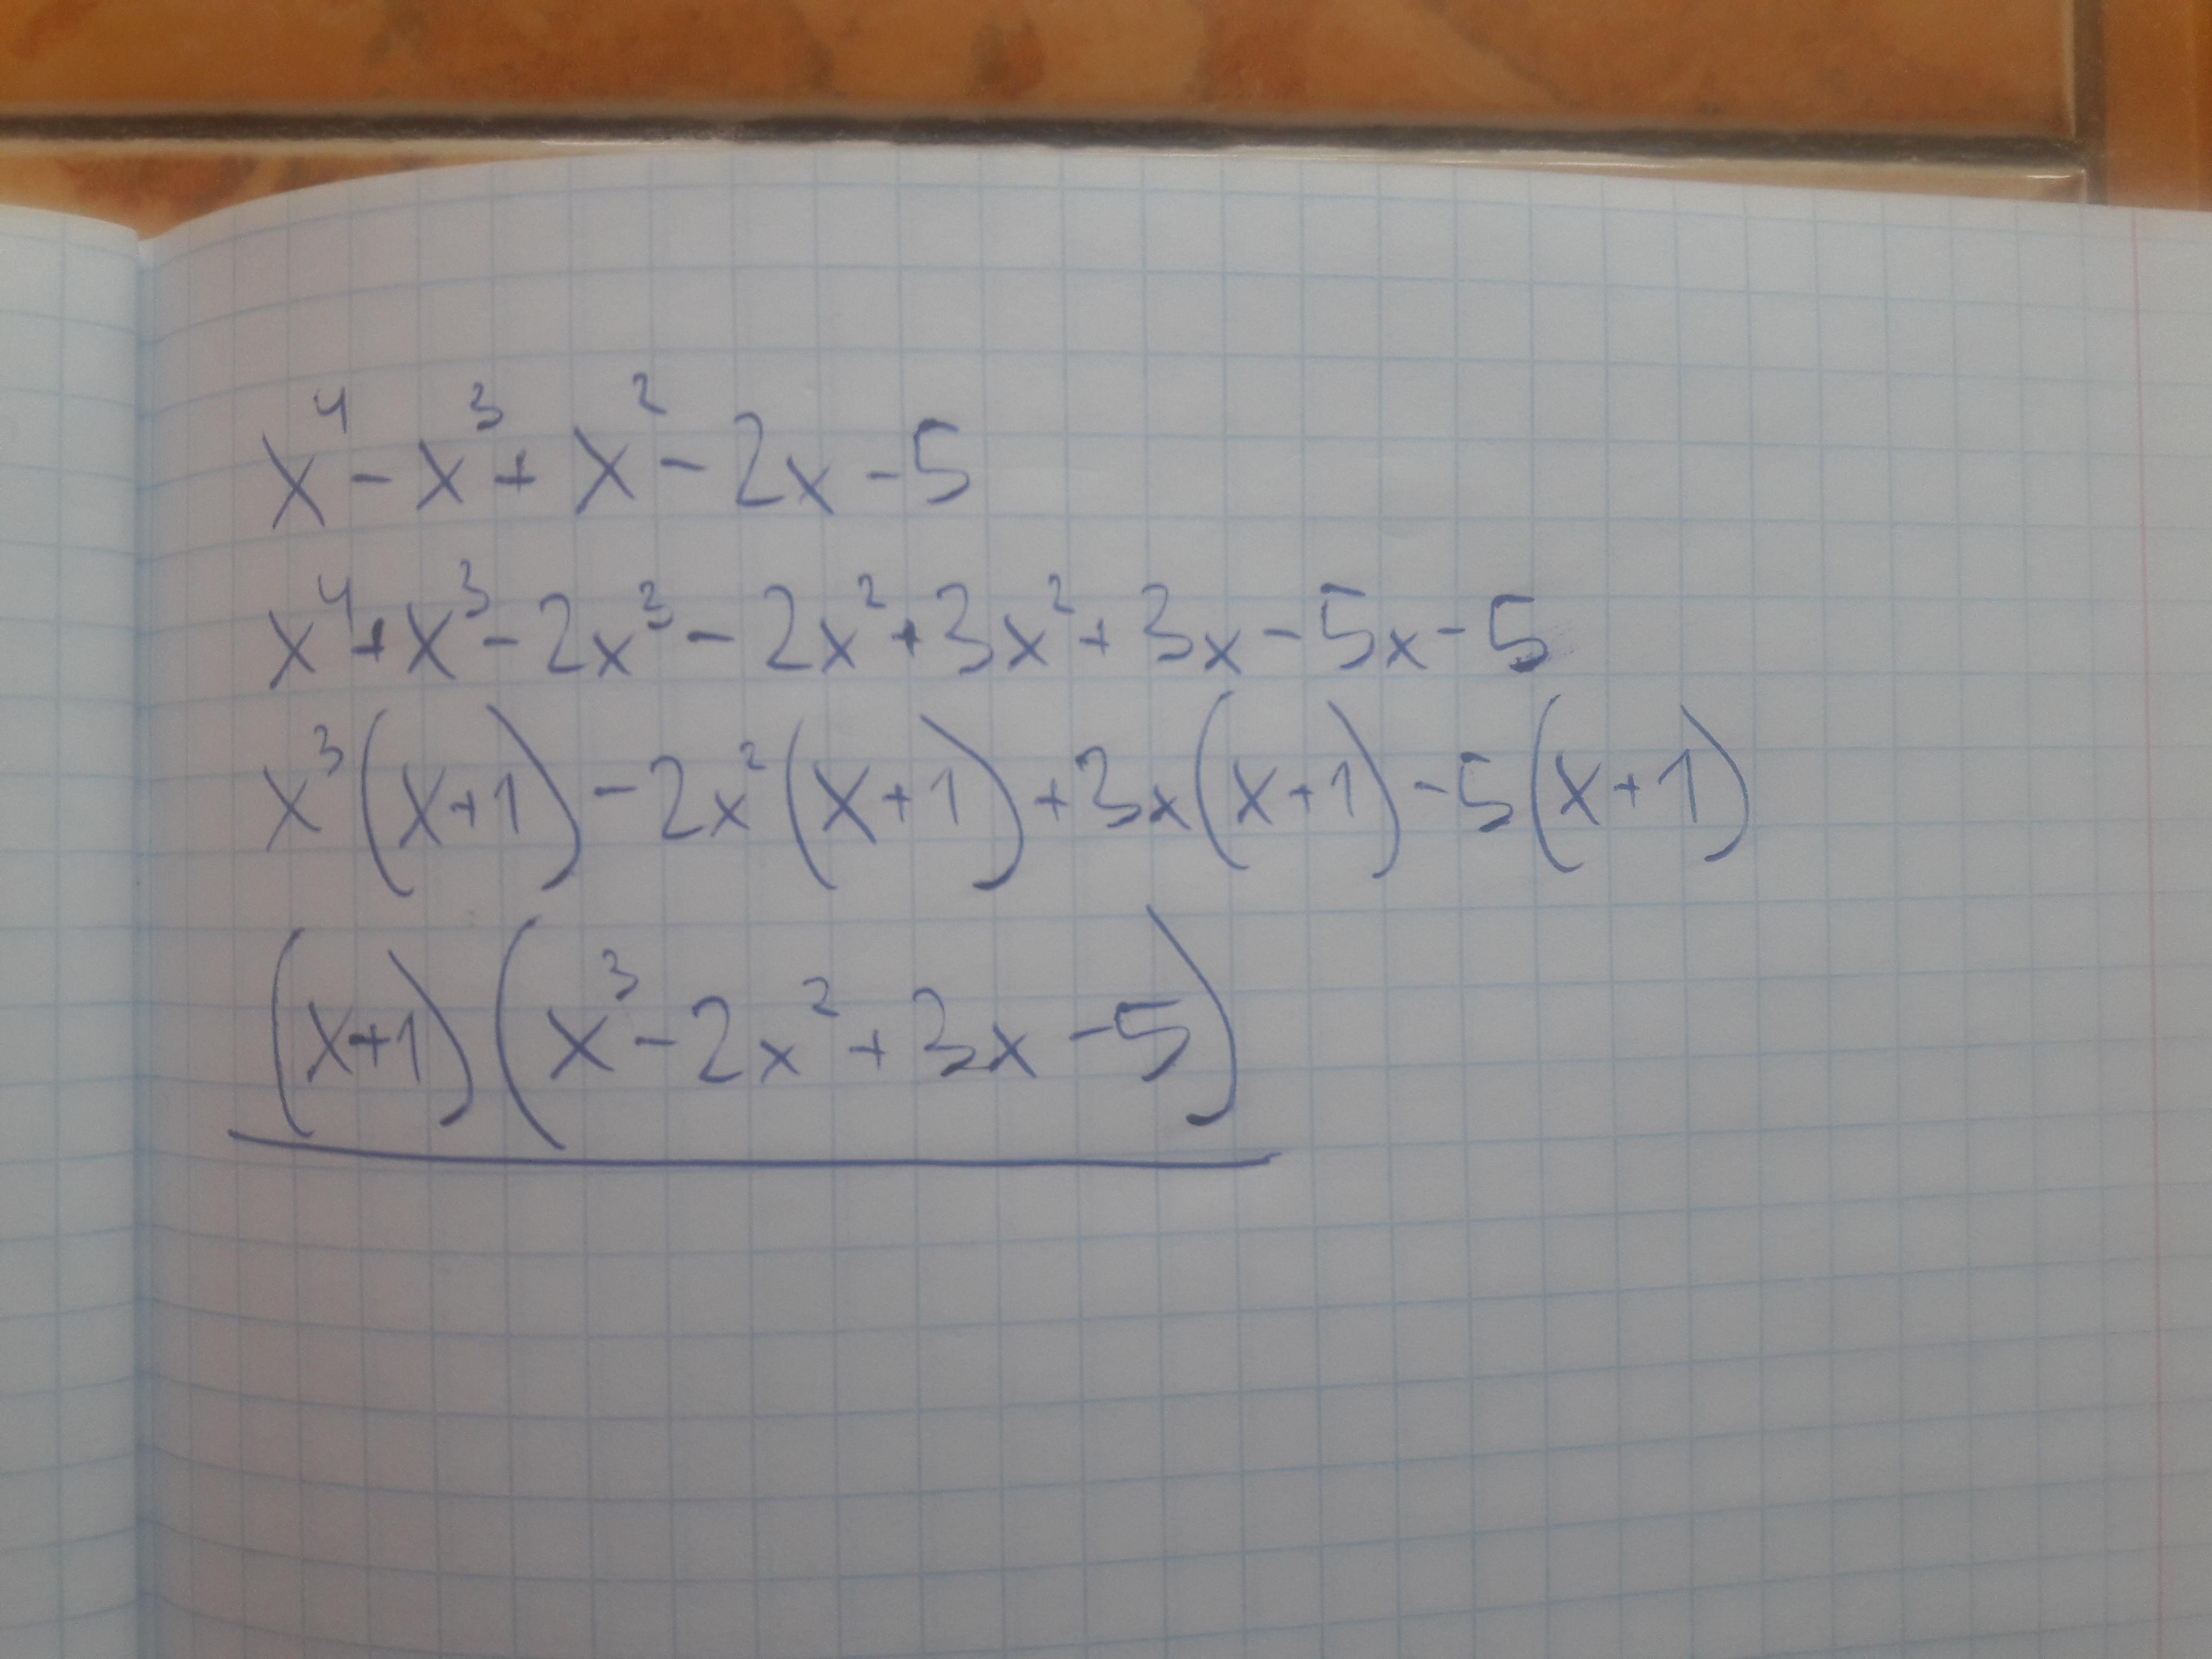 x⁴ - x³ + x² - 2x - 5
x⁴ + x³ - 2x³ - 2x² + 3x² + 3x - 5x - 5
x³(x+1) - 2x²(x+1) + 3x(x+1) - 5(x+1)
(x+1)(x³ - 2x² + 3x - 5)